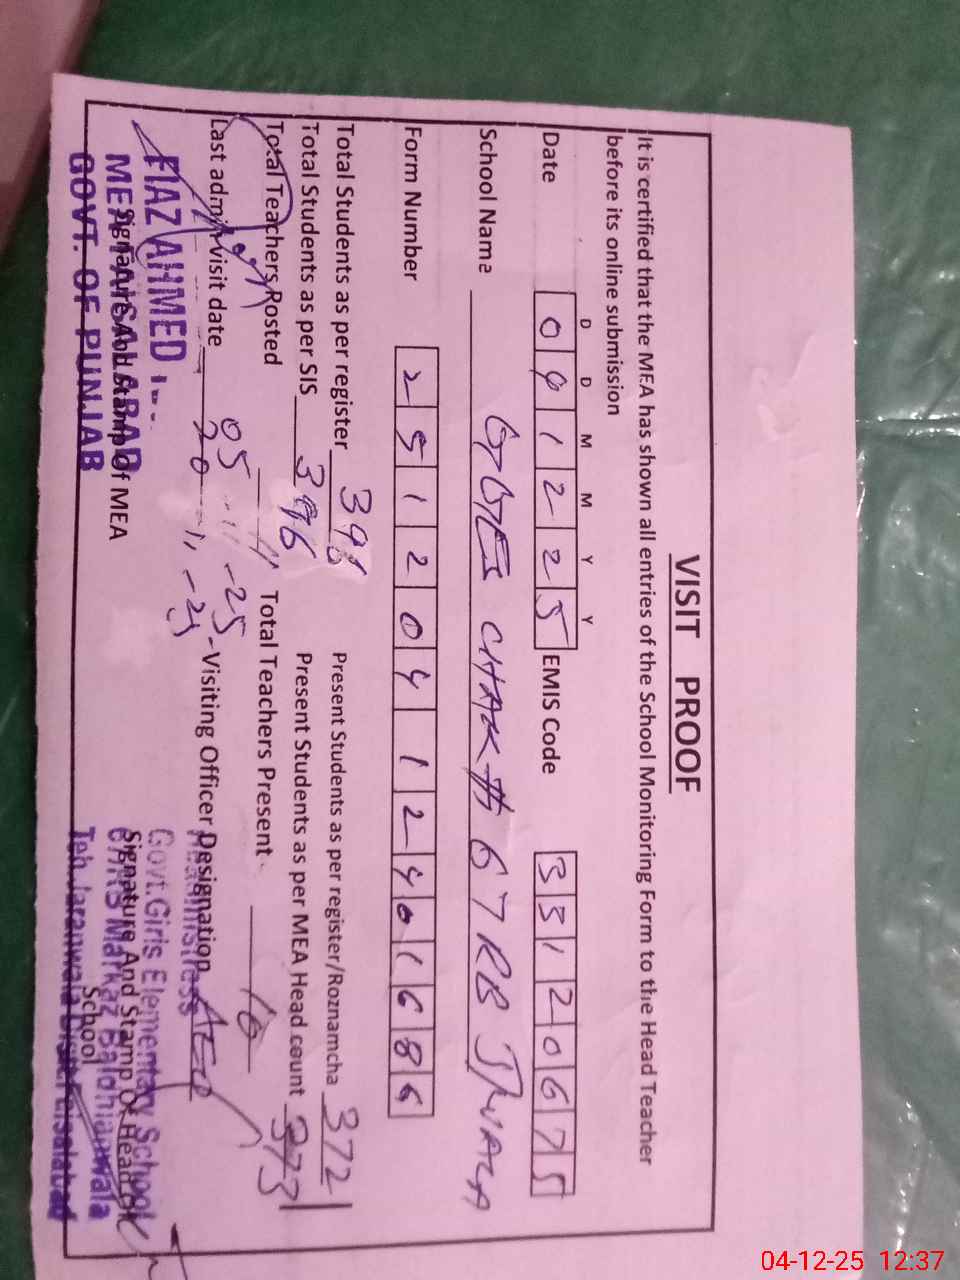 VISIT PROOF
It is certified that the MEA has shown all entries of the School Monitoring Form to the Head Teacher
before its online submission
D D M M Y Y
Date 0 4 1 2 2 5 EMIS Code 3 3 1 2 0 6 7 5
School Name GGES CHAK # 67 RB
Form Number 2 5 1 2 0 4 1 2 4 0 1 6 8 6
Total Students as per register 396 Present Students as per register/Roznamcha 372
Total Students as per SIS 396 Present Students as per MEA Head count 373
Total Teachers Posted 11 Total Teachers Present 10
05-11-25
Last admin visit date 20-11-25 Visiting Officer Designation AEO
FIAZ AHMED
MEA FAISALABAD
GOVT. OF PUNJAB
Signature And Stamp Of MEA
Headmistress
Govt.Girls Elementary School
Markaz
Teh Jaranwala Distt Faisalabad
Signature And Stamp Of Head Of
School
04-12-25 12:37